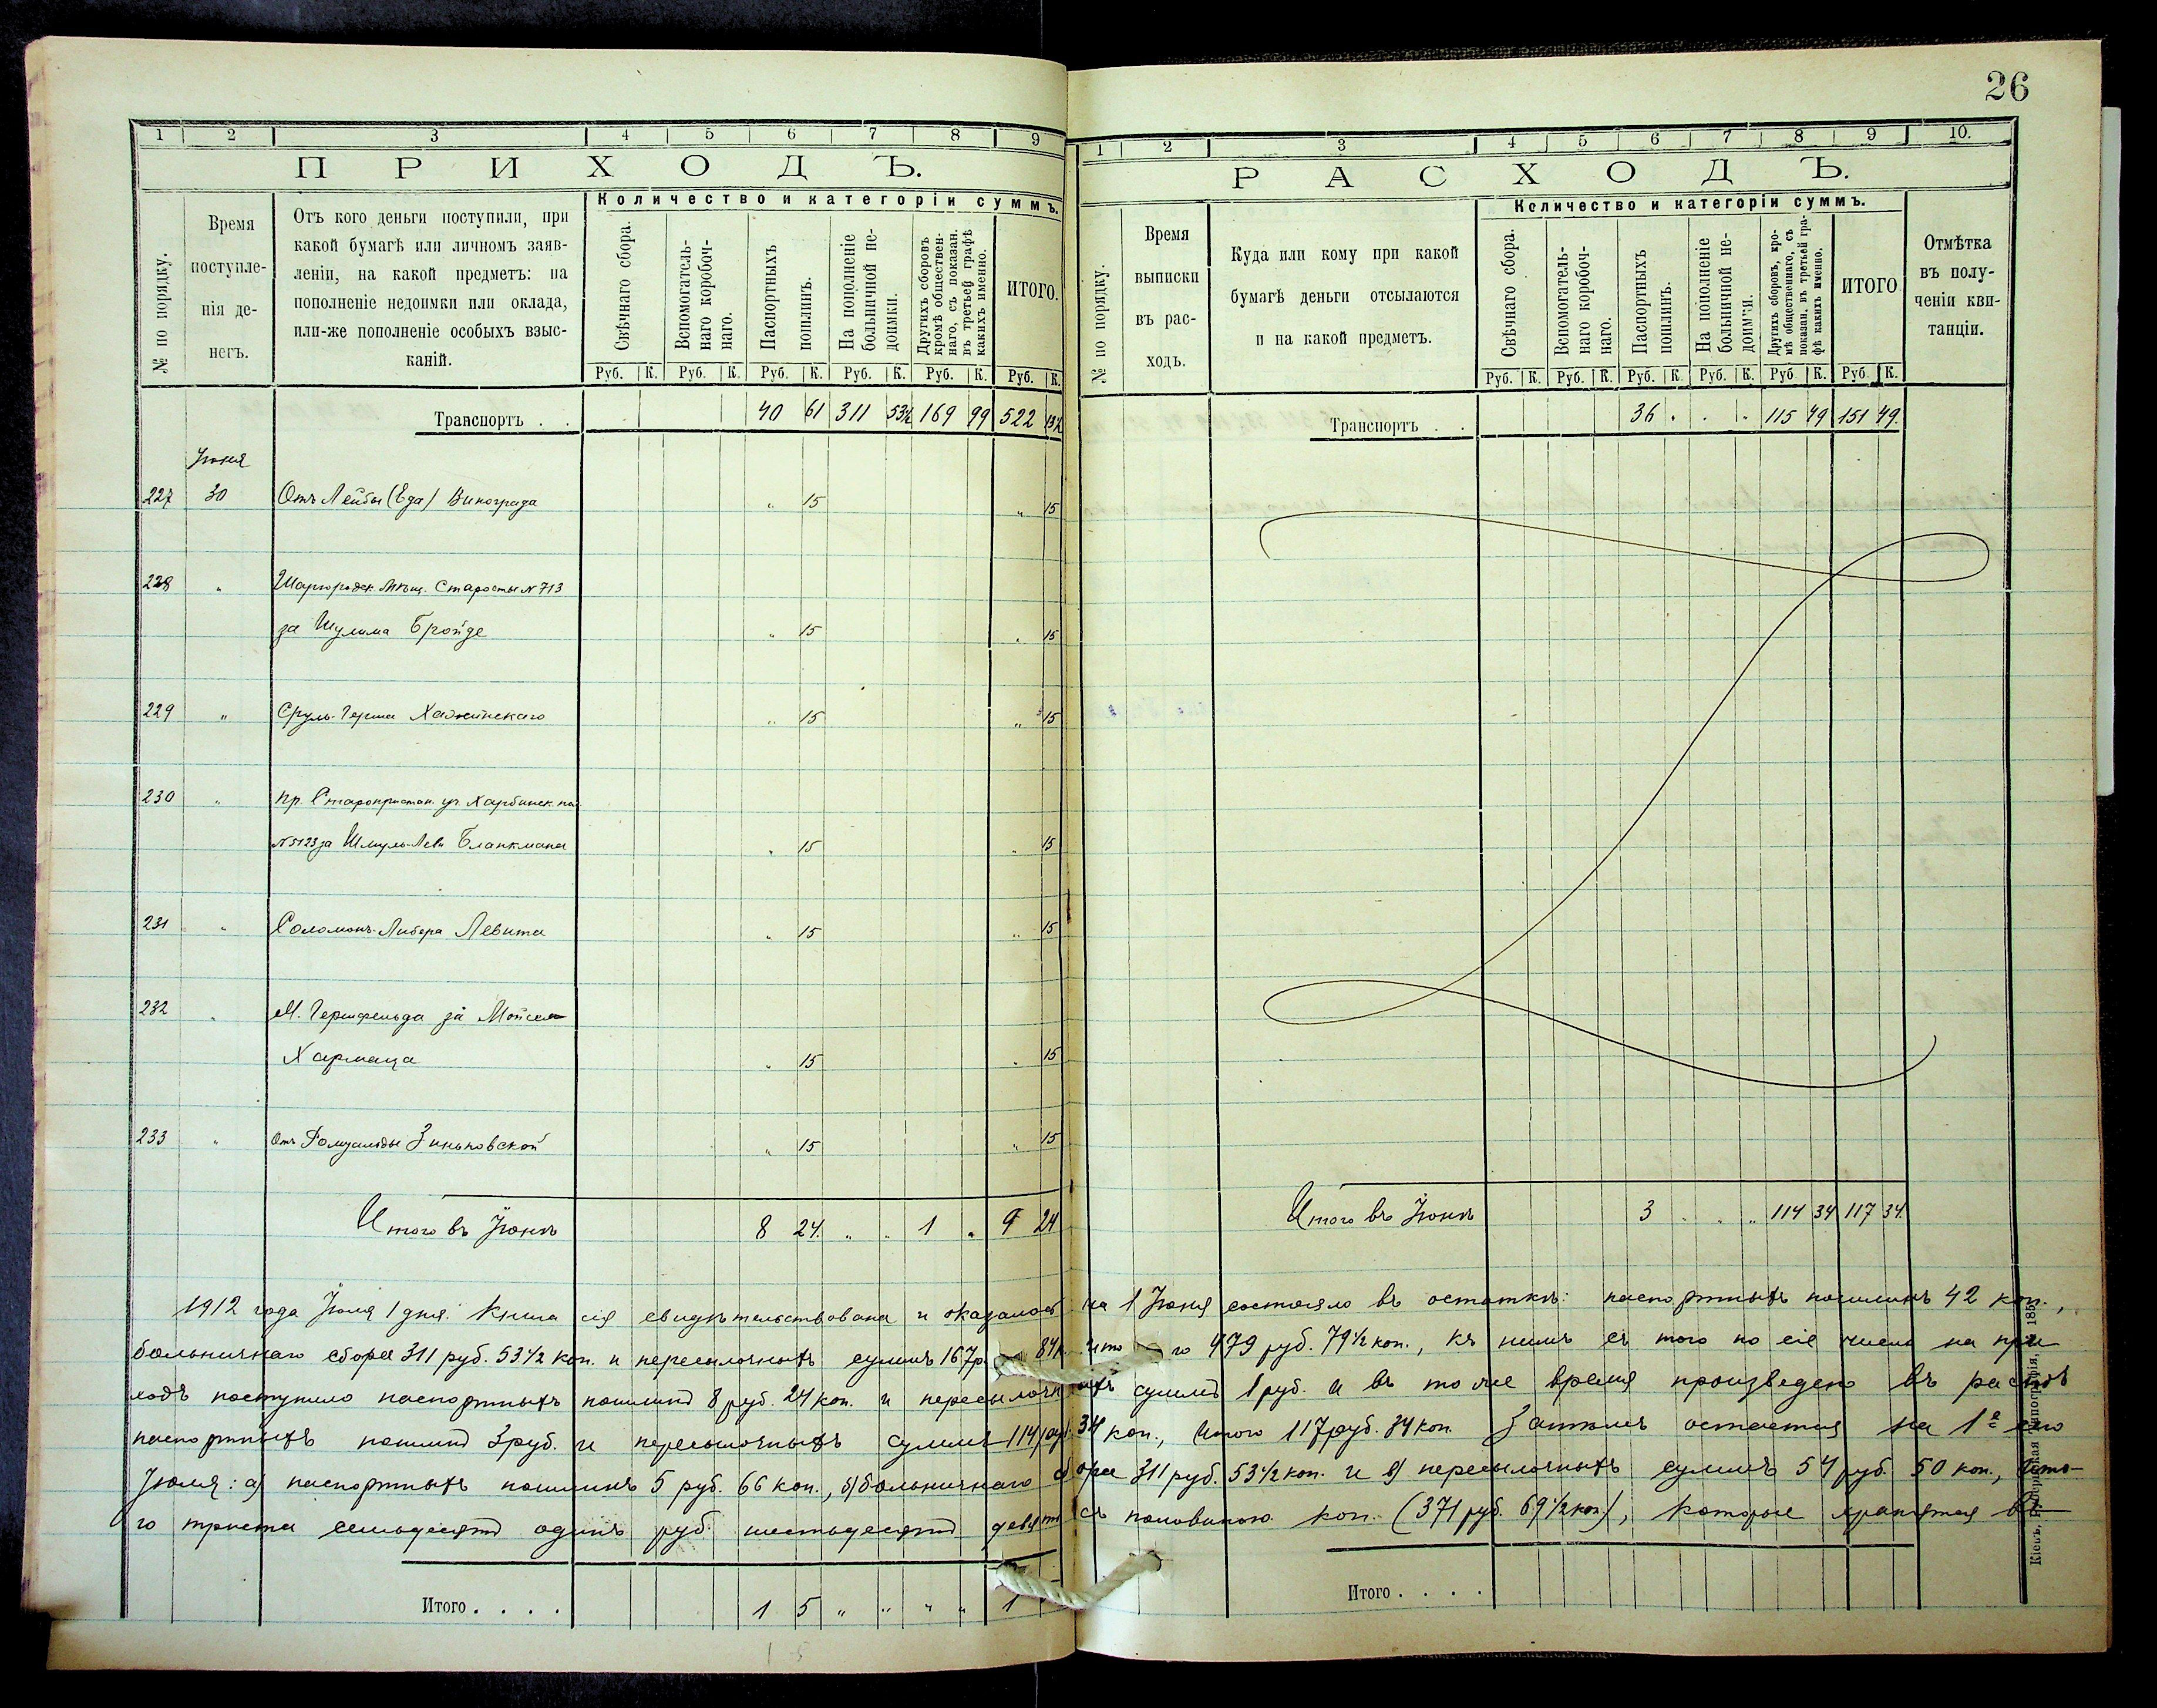 26
1 2 3 4 5 6 7 8 9
ПРИХОДЪ.
№ по порядку.
Время поступле-
нія де-
негъ.
Отъ кого деньги поступили, при
какой бумагѣ или личномъ заяв-
леніи, на какой предметъ: на
пополненіе недоимки или оклада,
или-же пополненіе особыхъ взыс-
каній.
Количество и категоріи суммъ.
Свѣчнаго сбора.
Вспомогатель-
наго коробоч-
наго.
Паспортныхъ
пошлинъ.
На пополненіе
больничной не-
доимки.
Другихъ сборовъ
кромѣ обществен-
наго, съ показан.
въ третьей графѣ
какихъ именно.
ИТОГО.
Руб. К. Руб. К. Руб. К. Руб. К. Руб. К. Руб. К.
Транспортъ . . 40 61 311 53½ 169 99 522 13½
Іюня
227 30 Отъ Лейбы (Еда) Винограда " 15 " 15
228 " Шаргородск. Мѣщ. Старосты N 713
за Шулима Бройде " 15 " 15
229 " Сруль-Герша Хажинскаго " 15 " 15
230 " Пр. Старопристан. уч. Харбинск. пол.
N 5123 за Шмуль-Лейб Бланкмана " 15 " 15
231 " Соломонъ-Либера Левита " 15 " 15
232 " М. Гершфельда за Мойсея
Хармаца " 15 " 15
233 " Отъ Ромуальды Зиньковской " 15 " 15
Итого въ Іюнѣ 8 24 " " 1 " 9 24
1 2 3 4 5 6 7 8 9 10.
РАСХОДЪ.
№ по порядку.
Время
выписки
въ рас-
ходъ.
Куда или кому при какой
бумагѣ деньги отсылаются
и на какой предметъ.
Количество и категоріи суммъ.
Свѣчнаго сбора.
Вспомогатель-
наго коробоч-
наго.
Паспортныхъ
пошлинъ.
На пополненіе
больничной не-
доимки.
Другихъ сборовъ, кро-
мѣ общественнаго, съ
показан. въ третьей гра-
фѣ какихъ именно.
ИТОГО
Отмѣтка
въ полу-
ченіи кви-
танціи.
Руб. К. Руб. К. Руб. К. Руб. К. Руб К. Руб К.
Транспортъ . . 36 . . . 115 49 151 49.
Итого въ Іюнѣ 3 . . " 114 34 117 34.
1912 года Іюля 1 дня. Книга сія свидѣтельствована и оказалось на 1 Іюня состояло въ остаткѣ: паспортныхъ пошлинъ 42 коп.,
больничнаго сбора 311 руб. 53½ коп. и пересылочныхъ суммъ 167 р. 84 к. итого 479 руб. 79½ коп., къ нимъ съ того по сіе число на при-
ходъ поступило паспортныхъ пошлинъ 8 руб. 24 коп. и пересылочныхъ суммъ 1 руб. и въ то же время произведено въ расходъ
паспортныхъ пошлинъ 3 руб. и пересылочныхъ суммъ 114 руб. 34 коп., Итого 117 руб. 34 коп. Затѣмъ остается на 1е сего
Іюля: а) паспортныхъ пошлинъ 5 руб. 66 коп., б) больничнаго сбора 311 руб. 53½ коп. и в) пересылочныхъ суммъ 54 руб. 50 коп., Ито-
го триста семьдесятъ одинъ руб. шестьдесятъ девять съ половиною коп. (371 руб. 69½ коп), которые хранятся въ
Итого . . . . 1 5 " " " " 1
Итого . . . .
1 5
Кіевъ, Губернская Типографія,